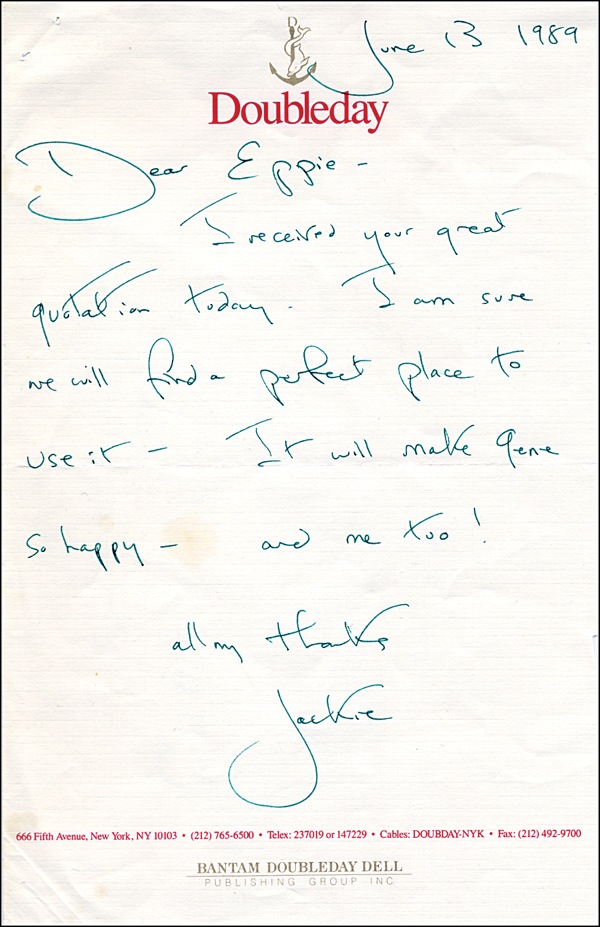 June 13 1989
Doubleday
Dear Eppie -
I received your great
quotation today. I am sure
we will find a perfect place to
use it - It will make Gene
so happy - and me too!
all my thanks
Jackie
666 Fifth Avenue, New York, NY 10103 • (212) 765-6500 • Telex: 237019 or 147229 • Cables: DOUBDAY-NYK • Fax: (212) 492-9700
BANTAM DOUBLEDAY DELL
PUBLISHING GROUP INC